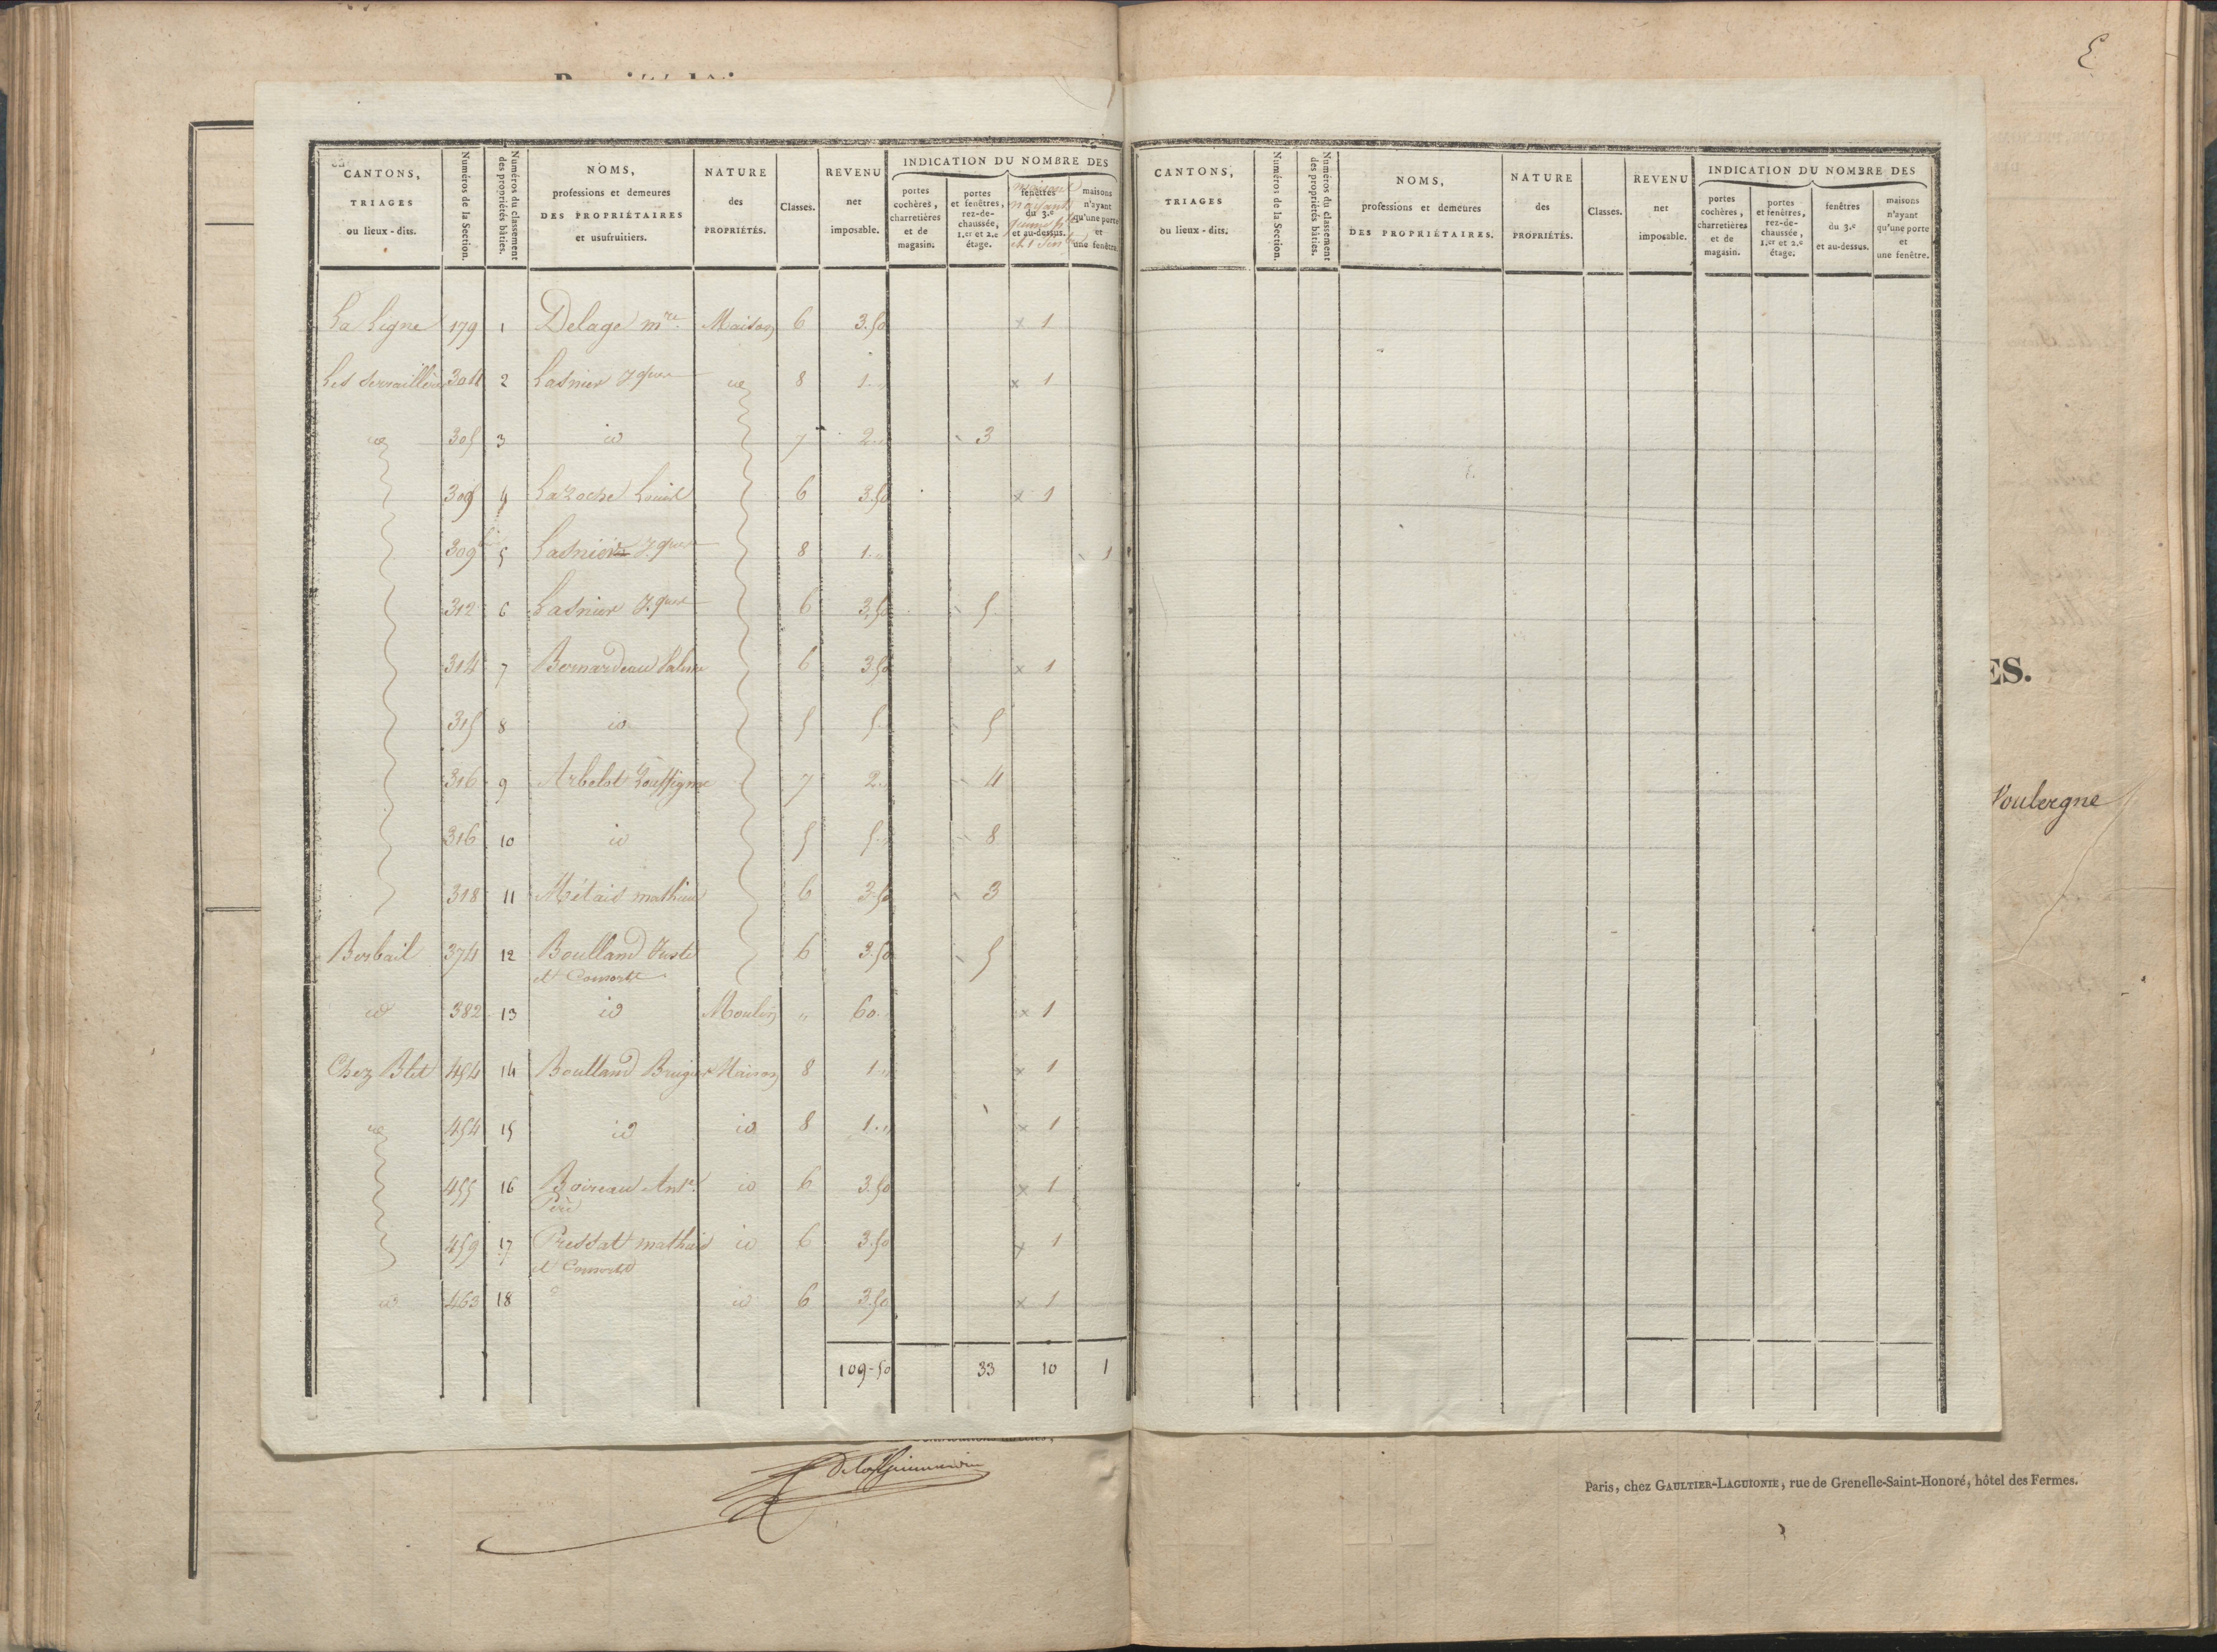 E
CANTONS,
TRIAGES
ou lieux-dits.
Numéros de la Section.
Numéros du classement
des propriétés bâties.
NOMS,
professions et demeures
DES PROPRIÉTAIRES
et usufruitiers.
NATURE
des
PROPRIÉTÉS.
Classes.
REVENU
net
imposable.
INDICATION DU NOMBRE DES
portes
cochères,
charretières
et de
magasin.
portes
et fenêtres,
rez-de-
chaussée,
1.er et 2.e
étage.
fenêtres
du 3.e
et au-dessus.
maisons
n'ayant
qu'une porte
et
une fenêtre.
La Ligne 179 1 Delage m.re Maison 6 3.50 x 1
Les 304 2 Lasnier Jques id 8 1. x 1
id 305 3 id 7 2. 3
309 4 Laroche Louis 6 3.50 x 1
309 bis 5 Lasnier Jques 8 1. 1
312 6 Lasnier Jques 6 3.50 5
314 7 Bernardeau 6 3.50 x 1
315 8 id 5 5. 5
316 9 Arbelot 7 2. 4
316 10 id 5 5. 8
318 11 Métais mathieu 6 3.50 3
374 12 Boulland Juste 6 3.50 5
et Consorts
id 382 13 id Moulin " 60. x 1
Chez Blet 454 14 Boulland Brugier Maison 8 1. x 1
id 454 15 id id 8 1. x 1
455 16 Boireau Ant.e id 6 3.50 x 1
Père
459 17 Pressat mathieu id 6 3.50 x 1
et Consorts
id 463 18 id 6 3.50 x 1
109-50 33 10 1
CANTONS,
TRIAGES
ou lieux-dits.
Numéros de la Section.
Numéros du classement
des propriétés bâties.
NOMS,
professions et demeures
DES PROPRIÉTAIRES.
NATURE
des
PROPRIÉTÉS.
Classes.
REVENU
net
imposable.
INDICATION DU NOMBRE DES
portes
cochères,
charretières
et de
magasin.
portes
et fenêtres,
rez-de-
chaussée,
1.er et 2.e
étage.
fenêtres
du 3.e
et au-dessus.
maisons
n'ayant
qu'une porte
et
une fenêtre.
ES.
Voulergne
Paris, chez GAULTIER-LAGUIONIE, rue de Grenelle-Saint-Honoré, hôtel des Fermes.